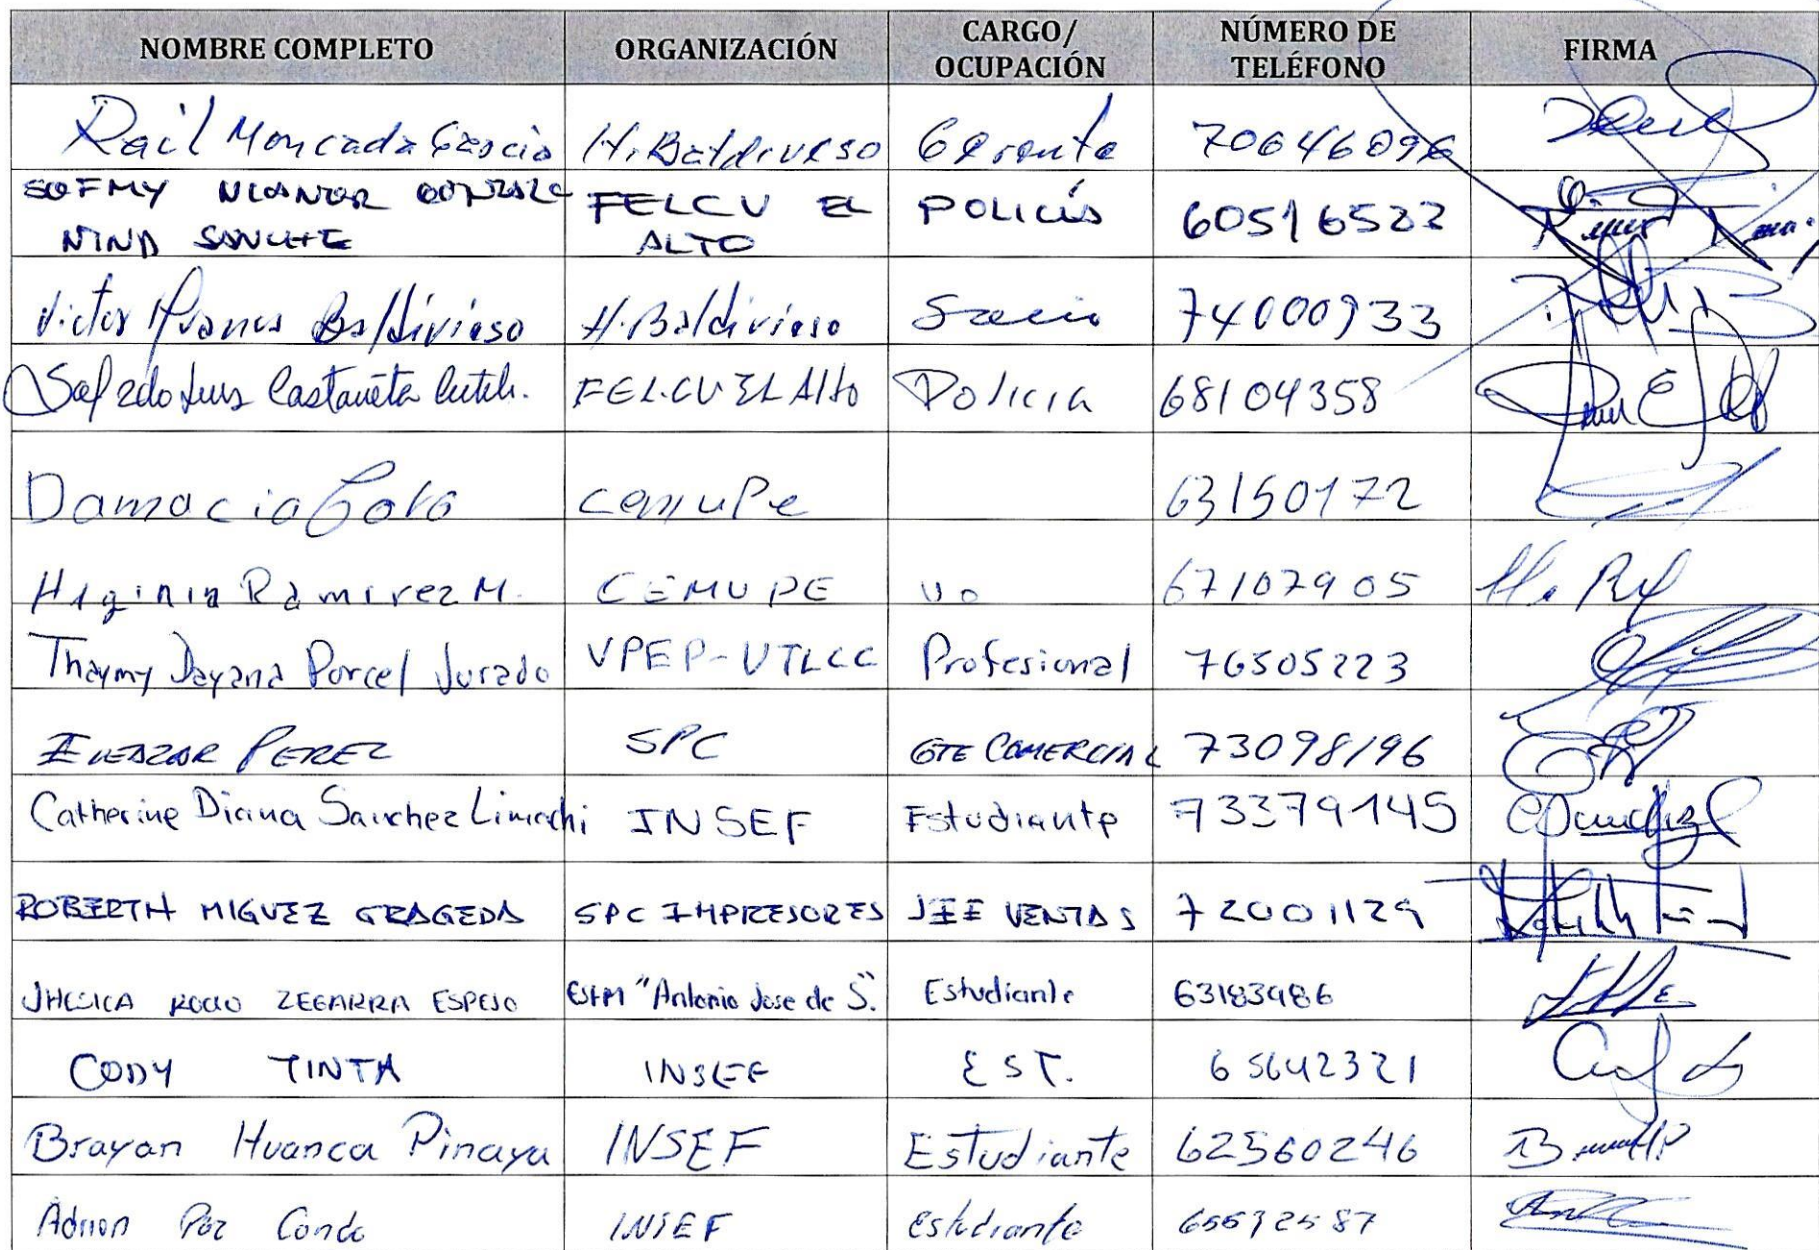 NOMBRE COMPLETO ORGANIZACIÓN CARGO/ OCUPACIÓN NÚMERO DE TELÉFONO FIRMA
Raúl Moncada García H. Baldivieso Gerente 70646096
NINA FELCV EL ALTO POLICÍA 60516522
Victor Baldivieso H. Baldivieso Socio 74000933
Luis Castañeta FELCV EL Alto Policia 68104358
Damacia CemuPe 63150172
Higinia Ramirez M. CEMUPE 67107905
Thaymy Dayana Porcel Jurado VPEP-UTLCC Profesional 76505223
ELEAZAR PEREZ SPC GTE COMERCIAL 73098196
Catherine Diana Sanchez Limachi INSEF Estudiante 73379145
ROBERTH MIGUEZ GRAGEDA SPC IMPRESORES JEFE VENTAS 72001129
JHESICA ROCIO ZEGARRA ESPEJO ESFM "Antonio Jose de S". Estudiante 63183486
CODY TINTA INSEF EST. 65642321
Brayan Huanca Pinaya INSEF Estudiante 62560246
Adrian Paz Conde INSEF Estudiante